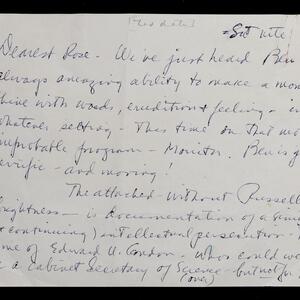 [no date]
= Sat nite
Dearest Rose - We've just heard Ben
always amazing ability to make a mom
shine with words, erudition & feeling - in
whatever setting - This time on that mo
improbable program - Monitor. Ben is g
errific - and moving!
The attached - without Russell
brightness - is documentation of a
& continuing) intellectual persecution -
me of Edward U. Condon. Who could wo
a cabinet secretary of Science - but not
(over)